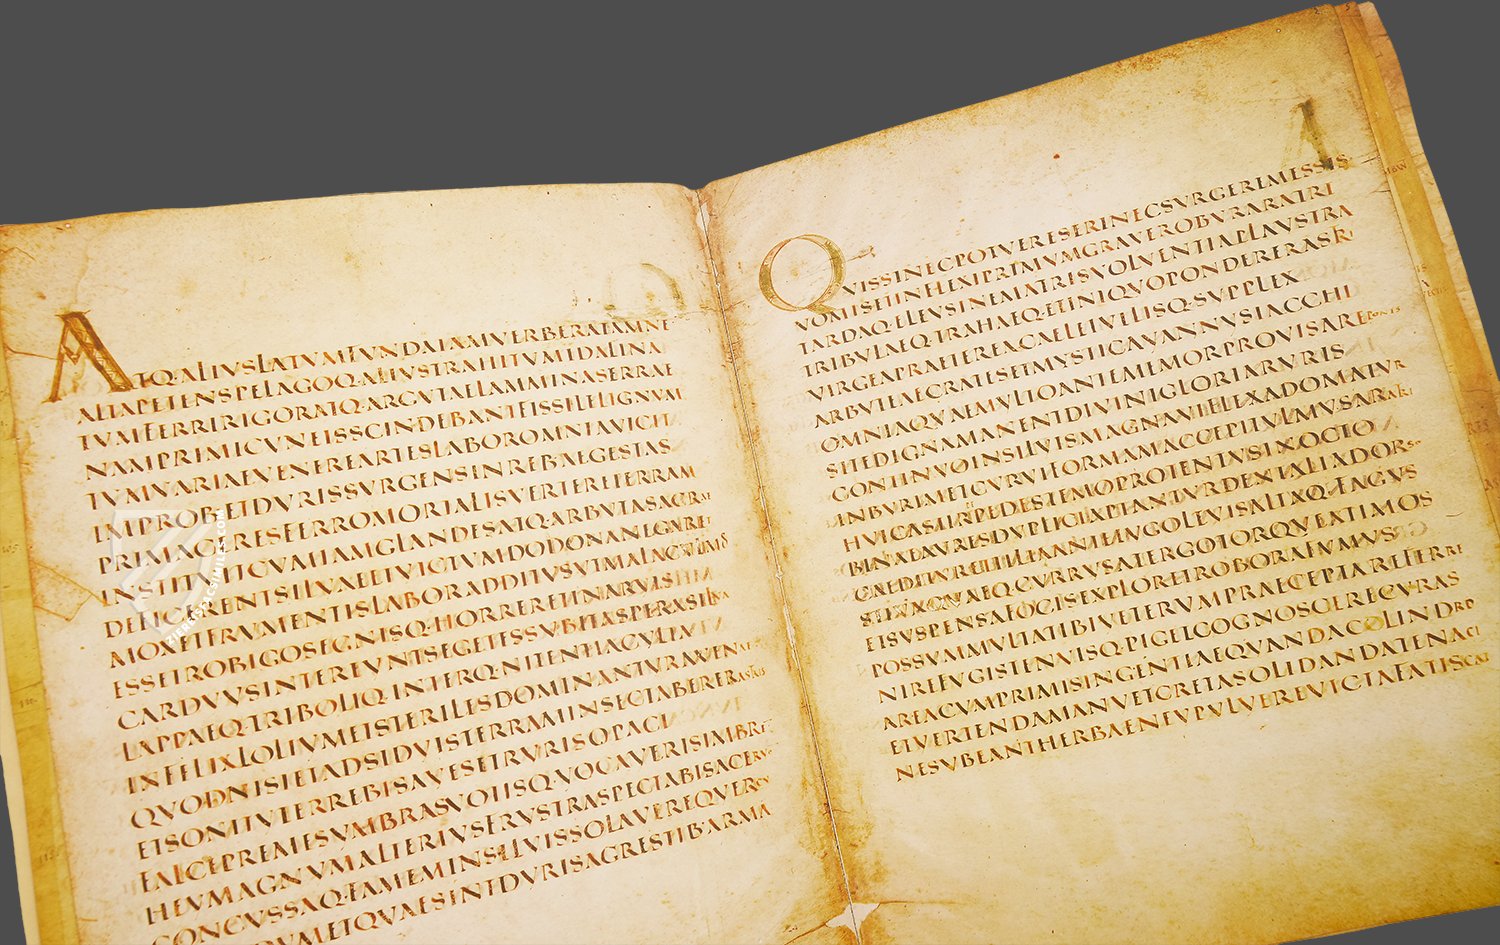 ATQ·ALIVSLATVMFVNDAIAMVERBERATAMNE
ALTAPETENSPELAGOQ·ALIVSTRAHITVMIDALINA
TVMFERRIRIGORATQ·ARGVTAELAMMINASERRAE
NAMPRIMICVNEISSCINDEBANTFISSILELIGNVM
TVMVARIAEVENEREARTESLABOROMNIAVICIT
IMPROB·ETDVRISSVRGENSINREBAEGESTAS
PRIMACERESFERROMORTALISVERTERETERRAM
INSTITVITCVMIAMGLANDESATQ·ARBVTASACRAE
DEFICERENTSILVAEETVICTVMDODONANEGARET
MOXETFRVMENTISLABORADDITVSVTMALACVLMOS
ESSETROBIGOSEGNISQ·HORRERETINARVIS
CARDVVSINTEREVNTSEGETESSVBITASPERASILVA
LAPPAEQ·TRIBOLIQ·INTERQ·NITENTIACVLTA
INFELIXLOLIVMETSTERILESDOMINANTVRAVENAE
QVODNISIETADSIDVISTERRAMINSECTABERERASTRIS
ETSONITVTERREBISAVESETRVRISOPACI
FALCEPREMESVMBRASVOTISQ·VOCAVERISIMBRE
HEVMAGNVMALTERIVSFRVSTRASPECTABISACERVO
CONCVSSAQ·FAMEMINSILVISSOLAVEREQVERCV
DVMETQVAESINTDVRISAGRESTIB·ARMA
QVISSINECPOTVERESERINECSVRGEREMESSIS
VOMISETINFLEXIPRIMVMGRAVEROBVRARATRI
TARDAQ·ELEVSINEMATRISVOLVENTIAPLAVSTRA
TRIBVLAEQ·TRAHAEQ·ETINIQVOPONDERERASRI
VIRGEAPRAETEREACAELEIVELISQ·SVPPLEX
ARBVTEAECRATESETMYSTICAVANNVSIACCHI
OMNIAQVAEMVLTOANTEMEMORPROVISAREPONIS
SITEDIGNAMANENTDIVINIGLORIARVRIS
CONTINVOINSILVISMAGNAVIFLEXADOMATVR
INBVRIMETCVRVIFORMAMACCEPITVLMVSARATRI
HVICASTIRPEPEDESTEMOPROTENTVSINOCTO
BINAEAVRESDVPLICIAPTANTVRDENTALIADORSO
CAEDITVRETTILIAANTEIVGOLEVISALTAQ·FAGVS
STIVAQVAEQ·CVRRVSATERGOTORQVEATIMOS
ETSVSPENSAFOCISEXPLORETROBORAFVMVS
POSSVMMVLTATIBIVETERVMPRAECEPTAREFERRE
NIREFVGISTENVISQ·PIGETCOGNOSCERECVRAS
AREACVMPRIMISINGENTIAEQVANDACOLINDRO
ETVERTENDAMANVETCRETASOLIDANDATENACI
NESVBEANTHERBAENEVPVLVEREVICTAFATISCAT